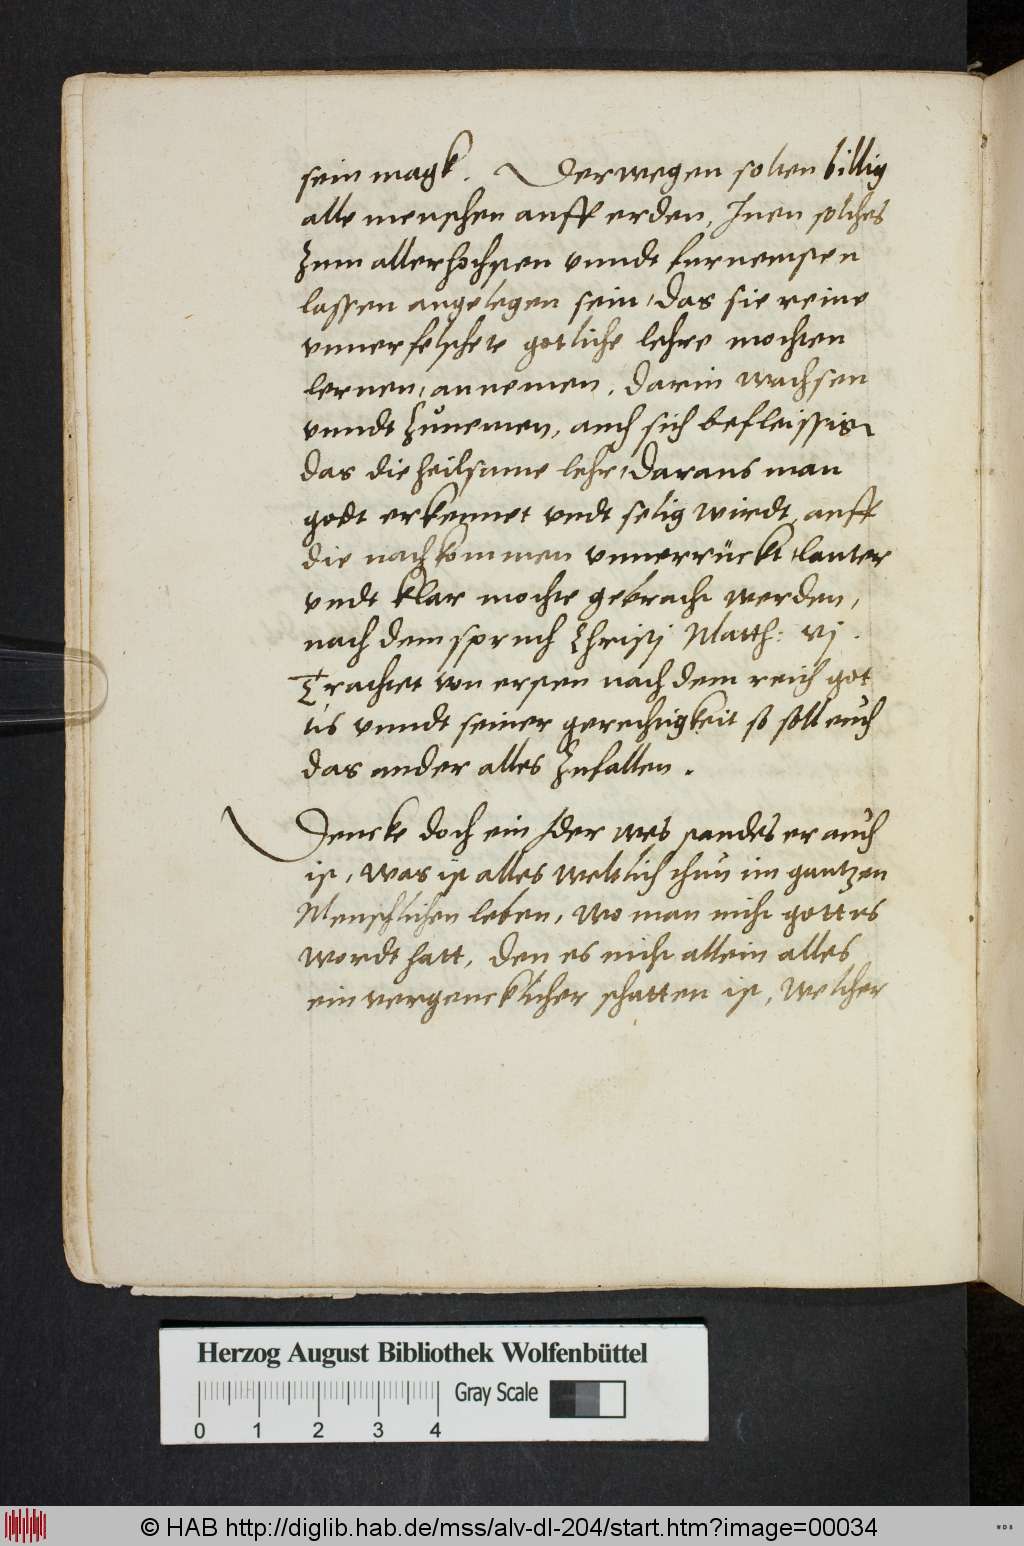 sein magk. Derwegen solten billig
alle menschen auff erden, Inen solches
zum allerhochsten vnndt furnemsten
lassen angelegen sein, das sie reine
vnuerfelschete gotliche lehre mochten
lernen, annemen, darin wachsen
vnndt zunemen, auch sich befleissig
das die heilsame lehr, daraus man
godt erkennet vndt selig wirdt, auff
die nachkommen vnuerrückt, lauter
vndt klar mochte gebracht werden,
nach dem spruch Christj Matth: vj.
Trachtet von ersten nach dem reich got
tis vnndt seiner gerechtigkeit so soll euch
das ander alles zufallen.
Dencke doch ein Jder wes standes er auch
ist, was ist alles weltlich thun im gantzen
Menschlichen leben, wo man nicht gottes
wordt hatt, den es nicht allein alles
ein vergencklicher schatten ist, welcher
Herzog August Bibliothek Wolfenbüttel
Gray Scale
0 1 2 3 4
© HAB http://diglib.hab.de/mss/alv-dl-204/start.htm?image=00034